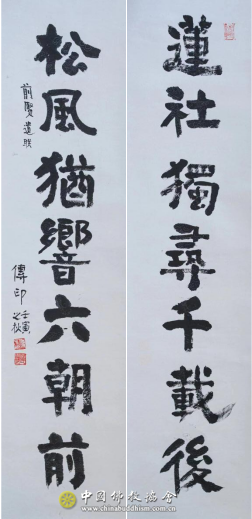 蓮社獨尋千載後
松風猶響六朝前
前賢遺聯
傳印
壬寅之秋
中国佛教协会
www.chinabuddhism.com.cn